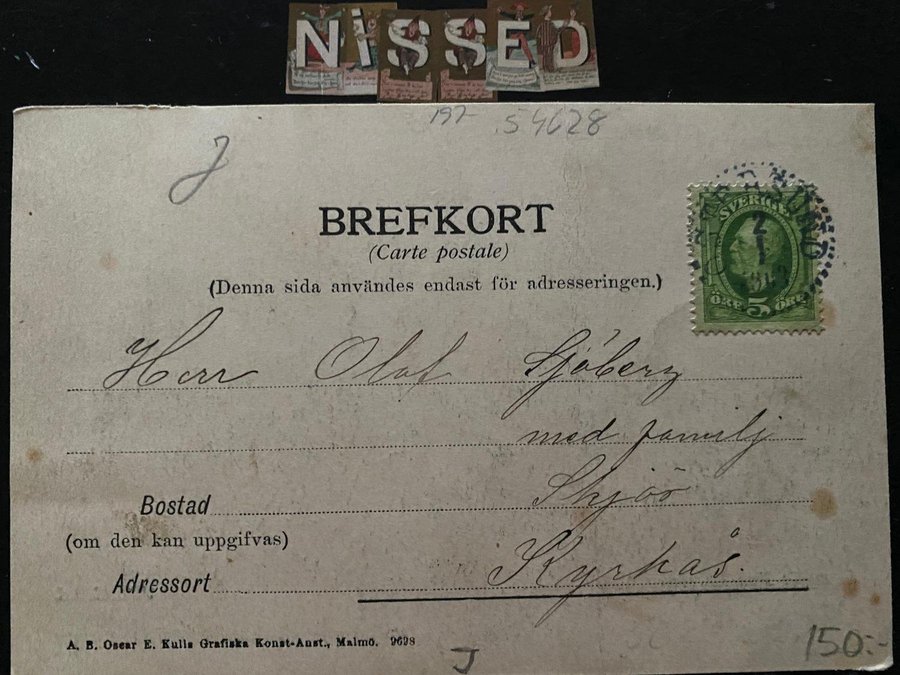 NISSED
197- 54628
J
BREFKORT
(Carte postale)
(Denna sida användes endast för adresseringen.)
SVERIGE
2
1
ÖRE 5 ÖRE
Herr Olof Sjöberg
med familj
Bostad
(om den kan uppgifvas)
Adressort Kyrkås.
A. B. Oscar E. Kulls Grafiska Konst-Anst., Malmö. 9698
J
150:-